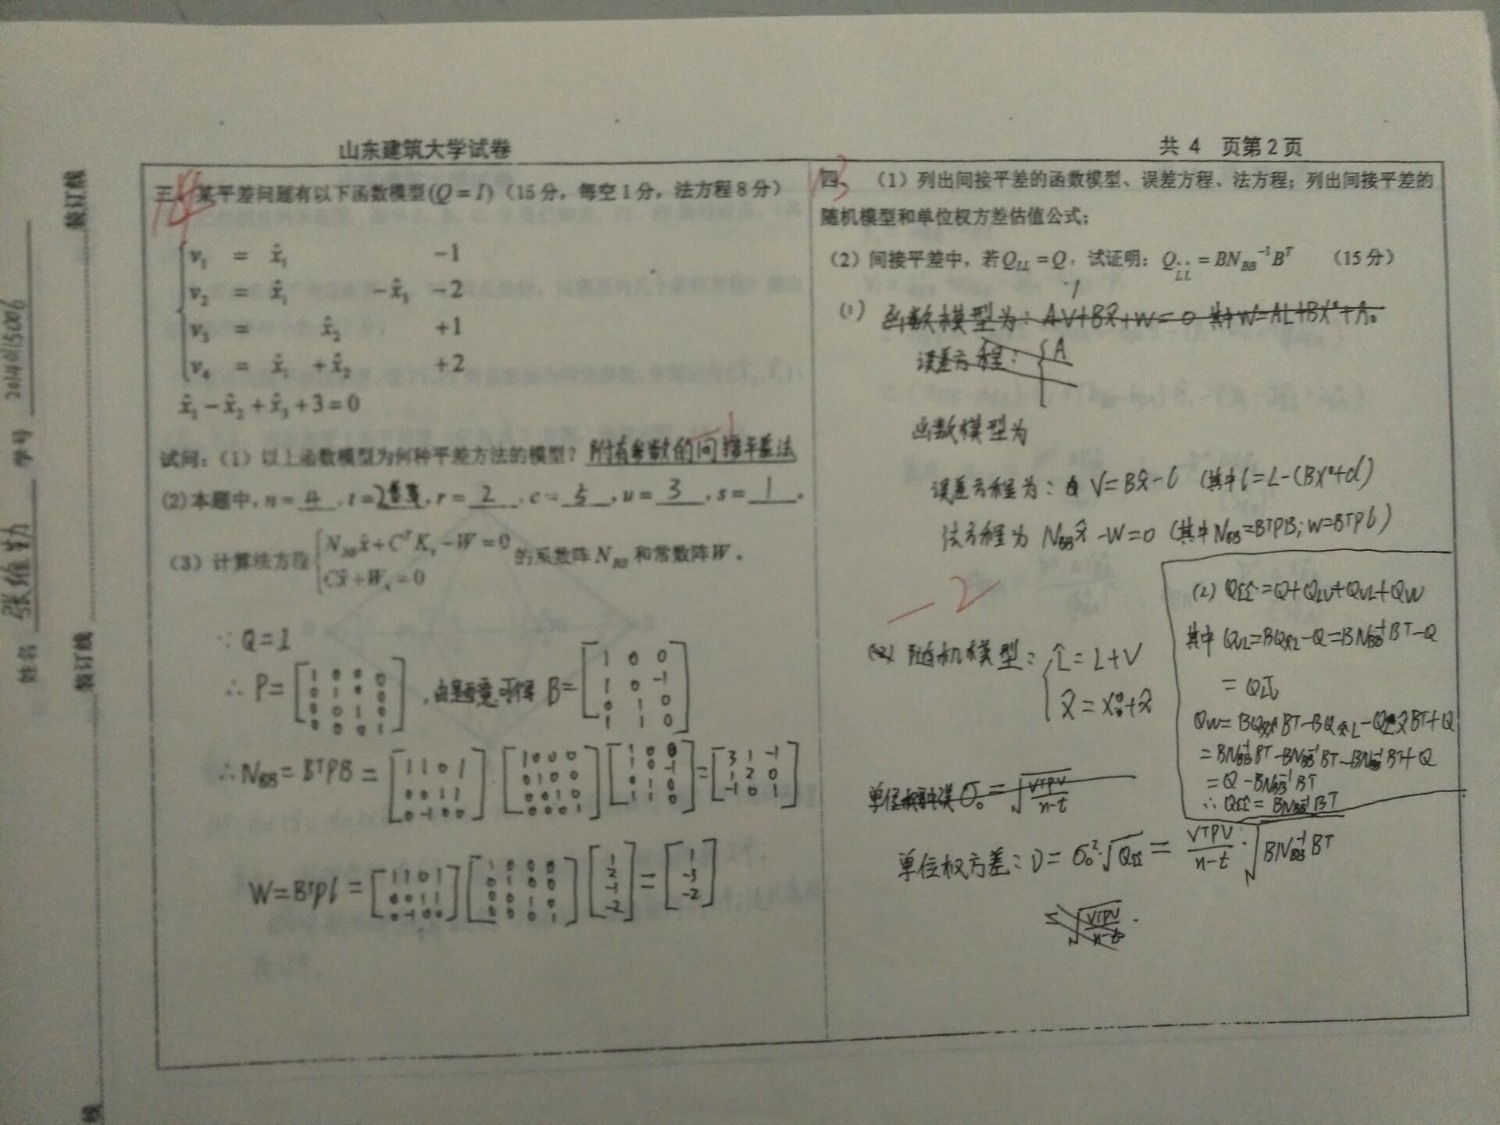 山东建筑大学试卷
共 4 页第 2 页
装订线
装订线
线
姓名 张维勤 学号
三、某平差问题有以下函数模型(Q = I)(15分,每空1分,法方程8分)
14
v₁ = x̂₁ -1
v₂ = x̂₁ -x̂₃ -2
v₃ = x̂₂ +1
v₄ = x̂₁ +x̂₂ +2
x̂₁ - x̂₂ + x̂₃ + 3 = 0
试问:(1)以上函数模型为何种平差方法的模型? 附有参数的间接平差法
-1
(2)本题中,n= 4 ,t= 2 ,r= 2 ,c= 5 ,u= 3 ,s= 1 。
(3)计算法方程 { N_BB x̂ + CᵀK_s - W = 0
Cx̂ + W_x = 0 的系数阵 N_BB 和常数阵 W。
∵ Q = I
∴ P = [1 0 0 0; 0 1 0 0; 0 0 1 0; 0 0 0 1], 由题意可得 B = [1 0 0; 1 0 -1; 0 1 0; 1 1 0]
∴ N_BB = BᵀPB = [1 1 0 1; 0 0 1 1; 0 -1 0 0] [1 0 0 0; 0 1 0 0; 0 0 1 0; 0 0 0 1] [1 0 0; 1 0 -1; 0 1 0; 1 1 0] = [3 1 -1; 1 2 0; -1 0 1]
W = BᵀPl = [1 1 0 1; 0 0 1 1; 0 -1 0 0] [1 0 0 0; 0 1 0 0; 0 0 1 0; 0 0 0 1] [1; 2; -1; -2] = [1; -3; -2]
四、 (1)列出间接平差的函数模型、误差方程、法方程;列出间接平差的
13
随机模型和单位权方差估值公式;
(2)间接平差中,若 Q_LL = Q,试证明:Q_L̂L̂ = BN_BB⁻¹Bᵀ (15分)
(1) 函数模型为: AV+Bx̂+W=0 其中W=AL+BX⁰+A₀
误差方程: { A
函数模型为
误差方程为: V=Bx̂-l (其中l=L-(BX⁰+d)
法方程为 N_BB x̂ - W = 0 (其中N_BB=BᵀPB; W=BᵀPl)
-2
随机模型: { L̂ = L+V
X̂ = X⁰+x̂
单位权中误 σ₀ = √(VᵀPV/(n-t))
单位权方差: D = σ₀²·√Q_L̂L̂ = VᵀPV/(n-t) · √(BN_BB⁻¹Bᵀ)
= √(VᵀPV/(n-t))
(2) Q_L̂L̂ = Q+Q_LV+Q_VL+Q_VV
其中 Q_VL = BQ_x̂L - Q = BN_BB⁻¹Bᵀ - Q
= Q_LV
Q_VV = BQ_x̂x̂Bᵀ - BQ_x̂L - Q_Lx̂Bᵀ + Q
= BN_BB⁻¹Bᵀ - BN_BB⁻¹Bᵀ - BN_BB⁻¹Bᵀ + Q
= Q - BN_BB⁻¹Bᵀ
∴ Q_L̂L̂ = BN_BB⁻¹Bᵀ